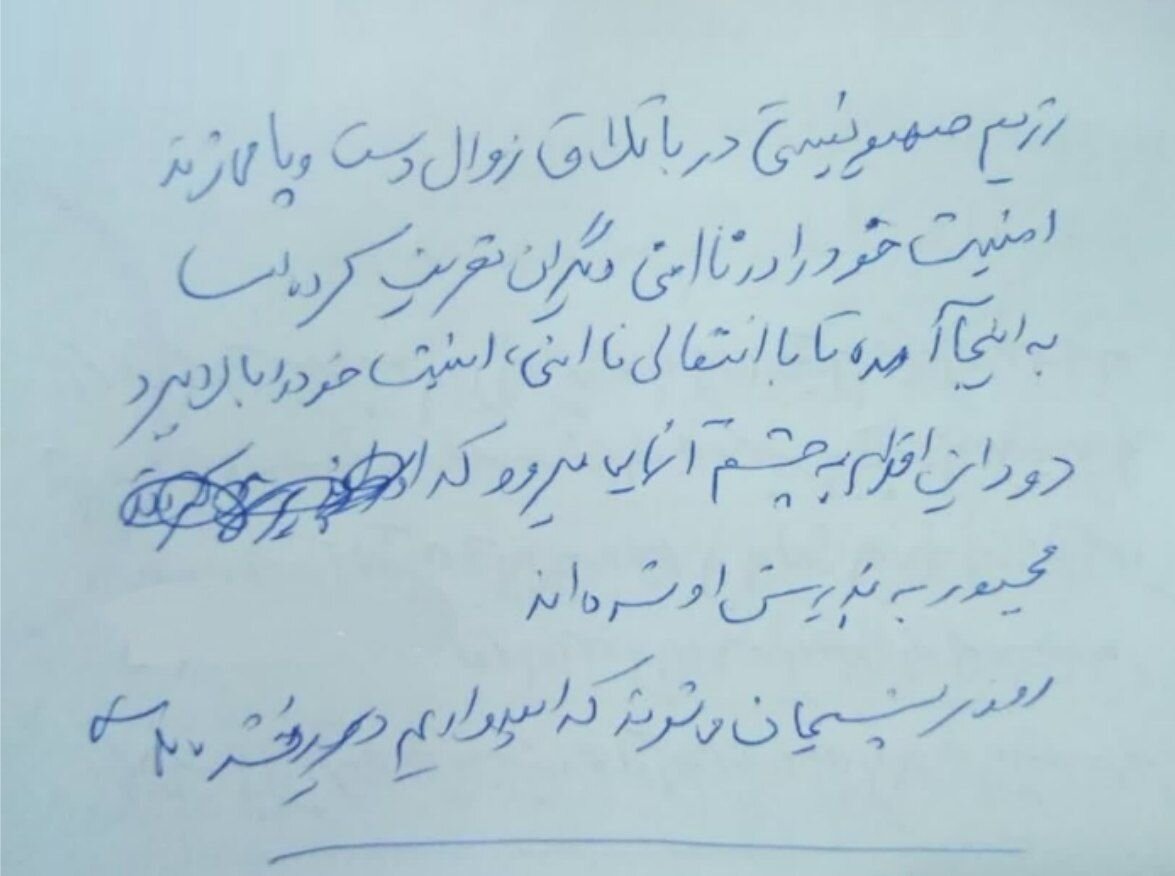 رژیم صهیونیستی در باتلاق زوال دست و پا می‌زند
امنیت خود را در ناامنی دیگران تعریف کرده است
به اینجا آمده تا با انتقال ناامنی، امنیت خود را بالا ببرد
دود این اقدام به چشم آنهایی میرود که
مجبور به پذیرش او شده‌اند
روزی پشیمان می‌شوند که امیدواریم دیر نشده باشد